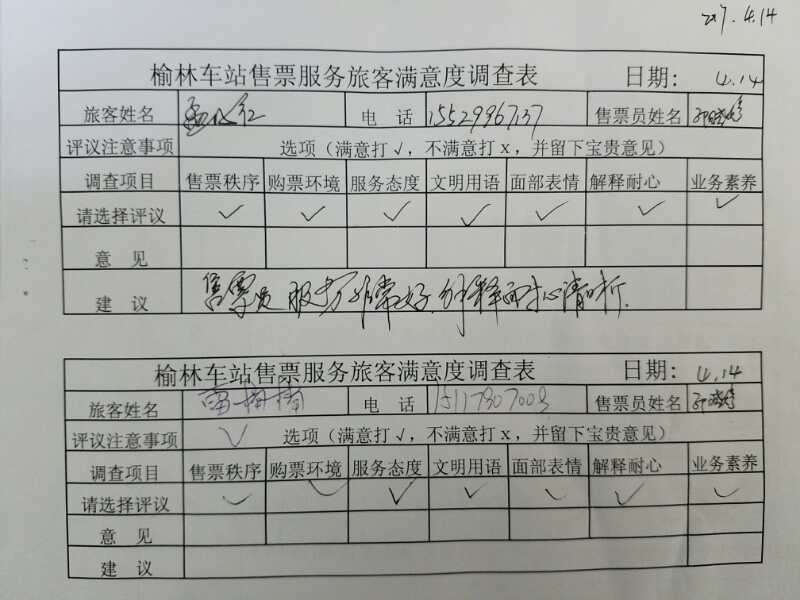 2017.4.14
榆林车站售票服务旅客满意度调查表 日期: 4.14
旅客姓名 电 话 15529967137 售票员姓名
评议注意事项 选项（满意打√，不满意打x，并留下宝贵意见）
调查项目 售票秩序 购票环境 服务态度 文明用语 面部表情 解释耐心 业务素养
请选择评议 ✓ ✓ ✓ ✓ ✓ ✓ ✓
意 见
建 议 售票员服务非常好.解释耐心清晰.
榆林车站售票服务旅客满意度调查表 日期: 4.14
旅客姓名 电 话 15117907003 售票员姓名
评议注意事项 ✓ 选项（满意打√，不满意打x，并留下宝贵意见）
调查项目 售票秩序 购票环境 服务态度 文明用语 面部表情 解释耐心 业务素养
请选择评议 ✓ ✓ ✓ ✓ ✓ ✓ ✓
意 见
建 议